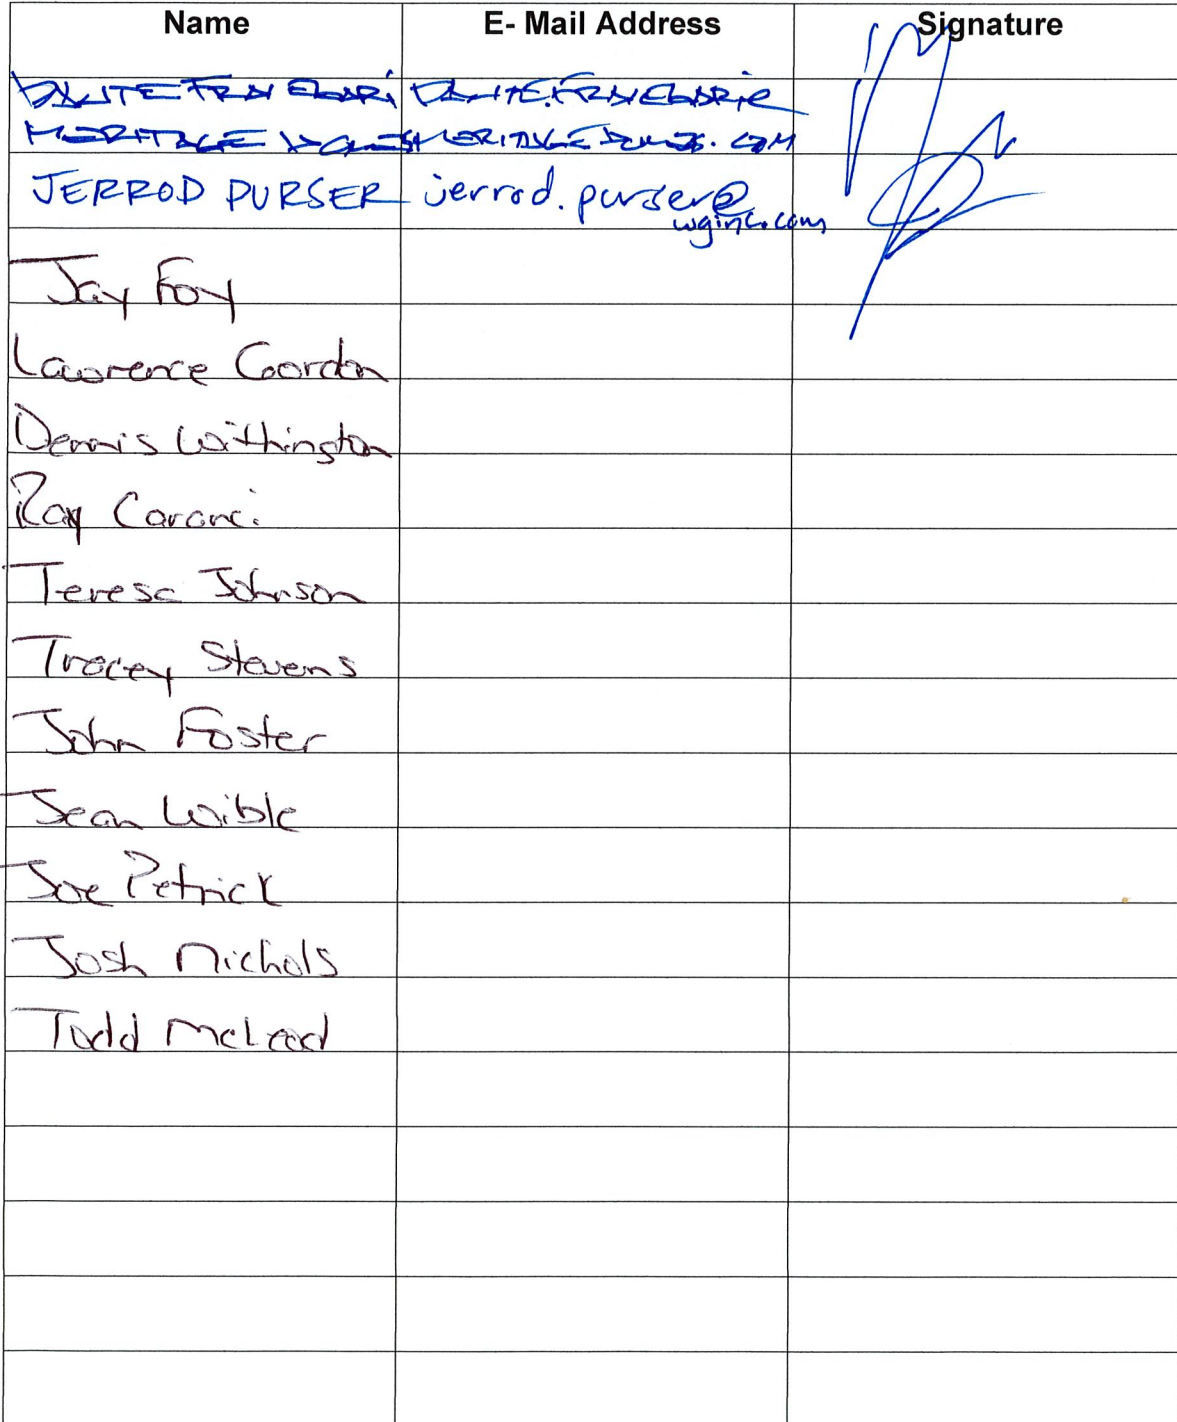 Name E- Mail Address Signature
DANTE FRAIEGARI DANTE.FRAIEGARI@
HERITAGE HERITAGE .COM
JERROD PURSER jerrod.purser@
wginc.com
Jay Foy
Lawrence Gordon
Dennis Withington
Ray Caranci
Teresa Johnson
Tracey Stevens
John Foster
Jean Wible
Joe Petrick
Josh Nichols
Todd McLeod